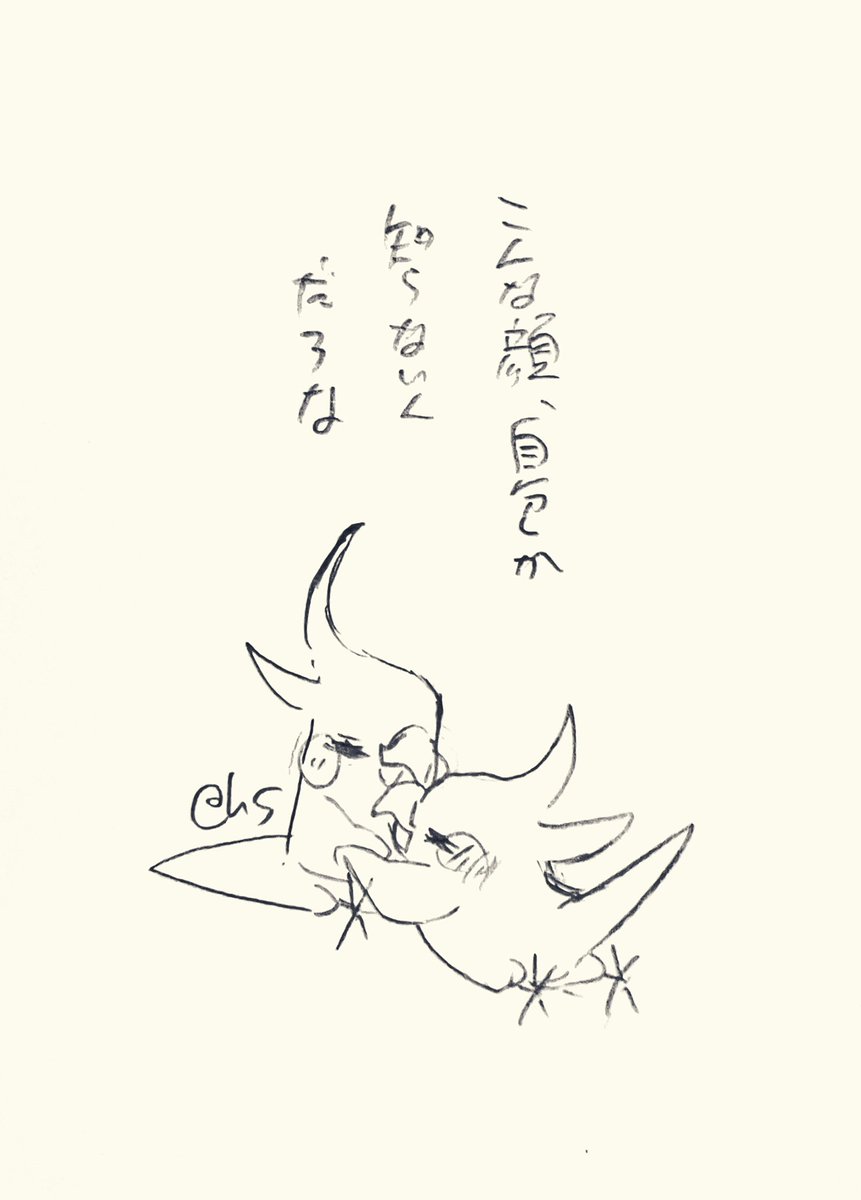 こんな顔、自分しか
知らないん
だろな
@hS